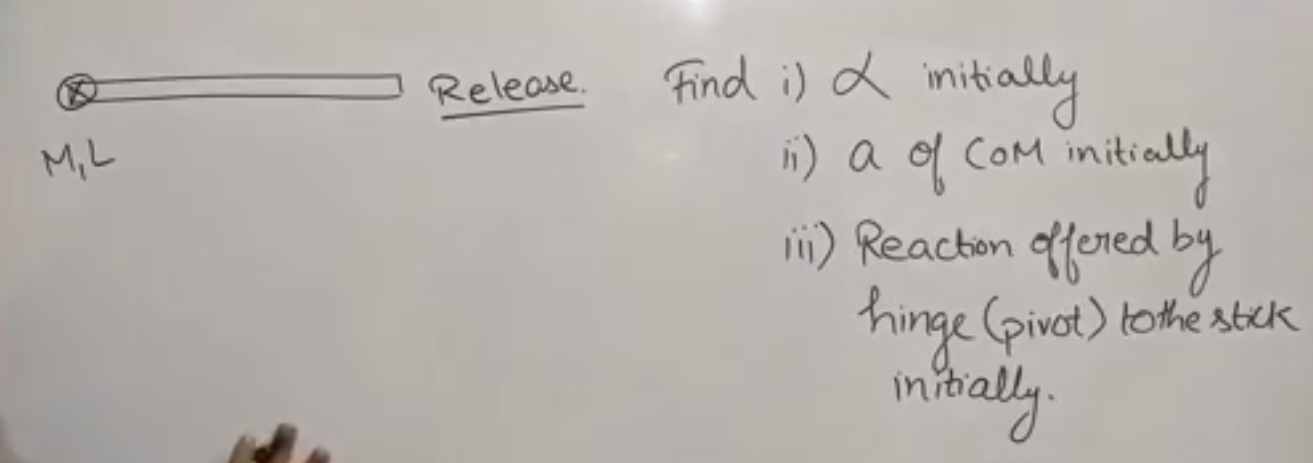 Release. Find i) α initially
M,L ii) a of CoM initially
iii) Reaction offered by
hinge (pivot) to the stick
initially.